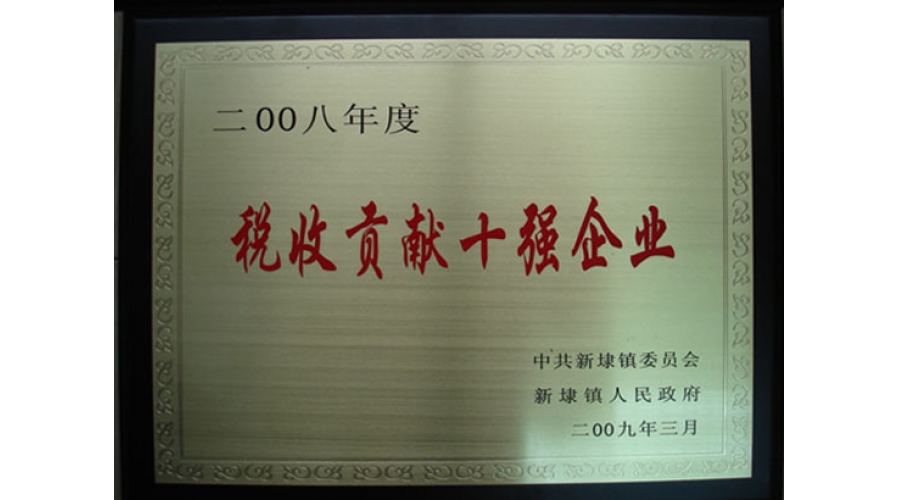 二00八年度
税收贡献十强企业
中共新埭镇委员会
新埭镇人民政府
二00九年三月